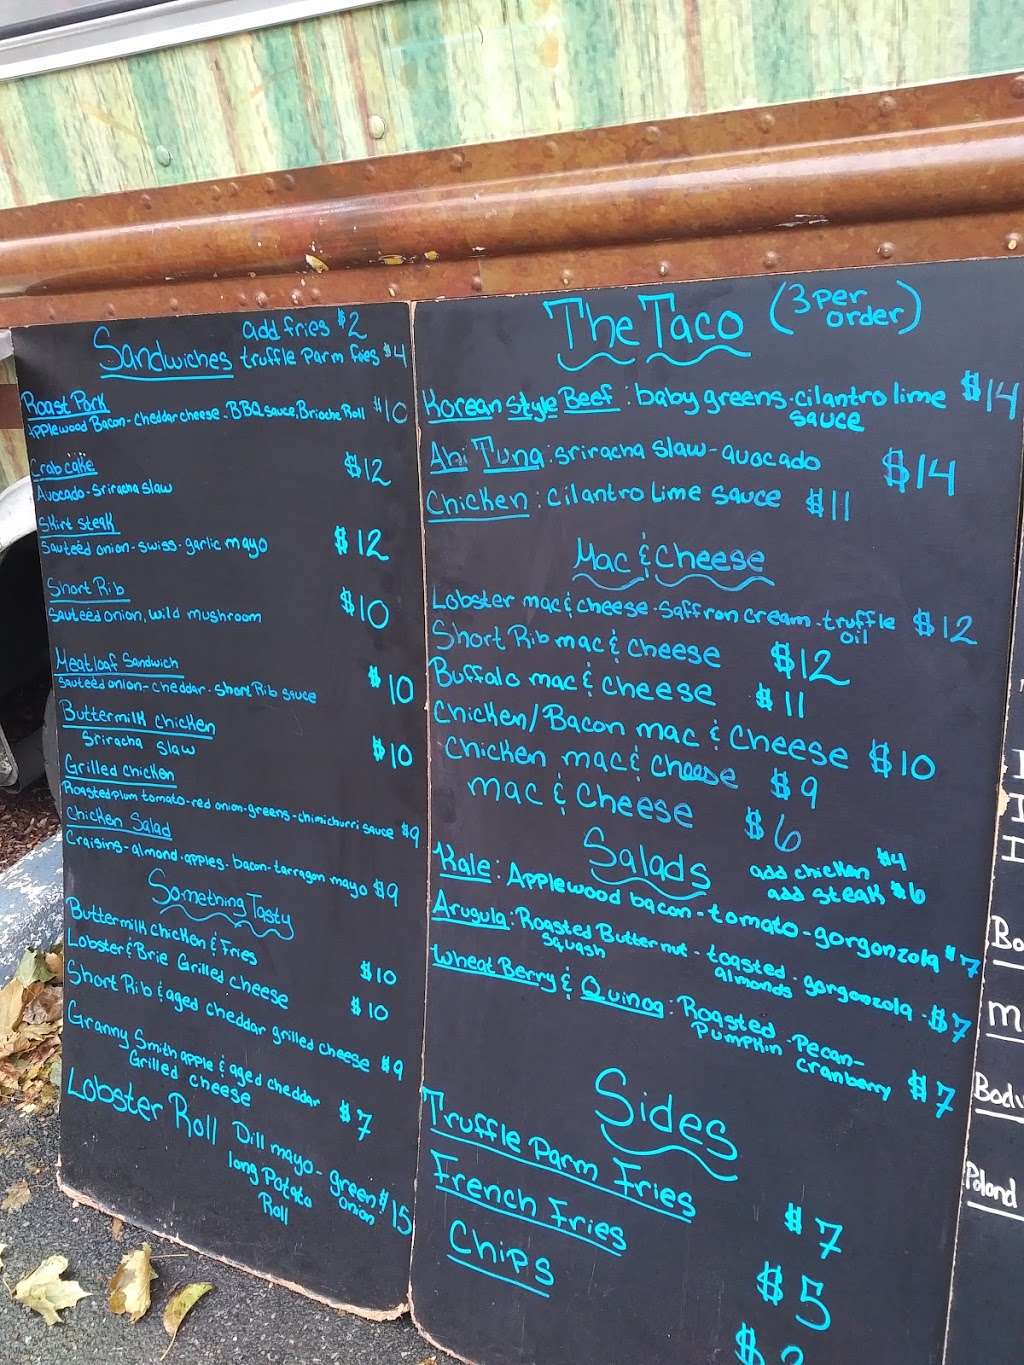 Sandwiches
add fries $2
truffle Parm fries $4
Roast Pork
Applewood Bacon - Cheddar cheese - BBQ sauce, Brioche Roll $10
Crab cake $12
Avocado - Sriracha Slaw
Skirt steak
Sautéed onion - swiss - garlic mayo $12
Short Rib $10
Sauteed onion, wild mushroom
Meatloaf Sandwich
Sauteed onion - cheddar - Short Rib sauce $10
Buttermilk chicken
Sriracha Slaw $10
Grilled chicken
Roasted plum tomato - red onion - greens - chimichurri sauce $9
Chicken Salad
Craisins - almond - apples - bacon - tarragon mayo $9
Something Tasty
Buttermilk chicken & Fries $10
Lobster & Brie Grilled cheese $10
Short Rib & aged cheddar grilled cheese $9
Granny Smith apple & aged cheddar
Grilled cheese $7
Lobster Roll Dill mayo - green
onion $15
long Potato
Roll
The Taco (3 per
order)
Korean Style Beef : baby greens - cilantro lime
sauce $14
Ahi Tuna : sriracha slaw - avocado $14
Chicken : cilantro Lime sauce $11
Mac & Cheese
Lobster mac & cheese - Saffron cream - truffle
oil $12
Short Rib mac & cheese $12
Buffalo mac & cheese $11
Chicken/Bacon mac & cheese $10
Chicken mac & cheese $9
mac & cheese $6
Salads
add chicken $4
add steak $6
Kale : Applewood bacon - tomato - gorgonzola $7
Arugula : Roasted Butternut - toasted - gorgonzola - $7
Squash almonds
Wheat Berry & Quinoa : Roasted - Pecan -
Pumpkin cranberry $7
Sides
Truffle Parm Fries $7
French Fries $5
Chips
Poland